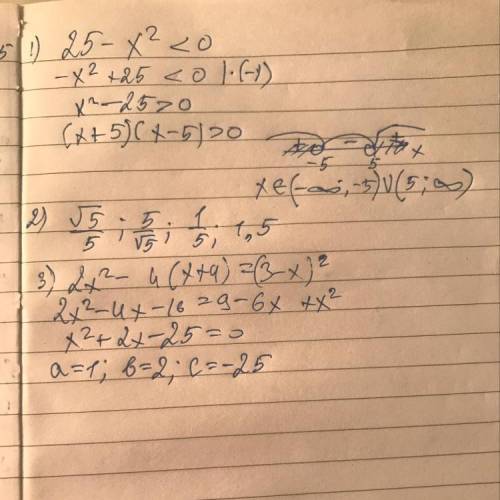 5 1) 25 - x² < 0
-x² + 25 < 0 | · (-1)
x² - 25 > 0
(x + 5)(x - 5) > 0
- x
-5 5
x ∈ (-∞; -5) ∪ (5; ∞)
2) √5/5 ; 5/√5 ; 1/5 ; 1,5
3) 2x² - 4(x+4) = (3-x)²
2x² - 4x - 16 = 9 - 6x + x²
x² + 2x - 25 = 0
a = 1; b = 2; c = -25